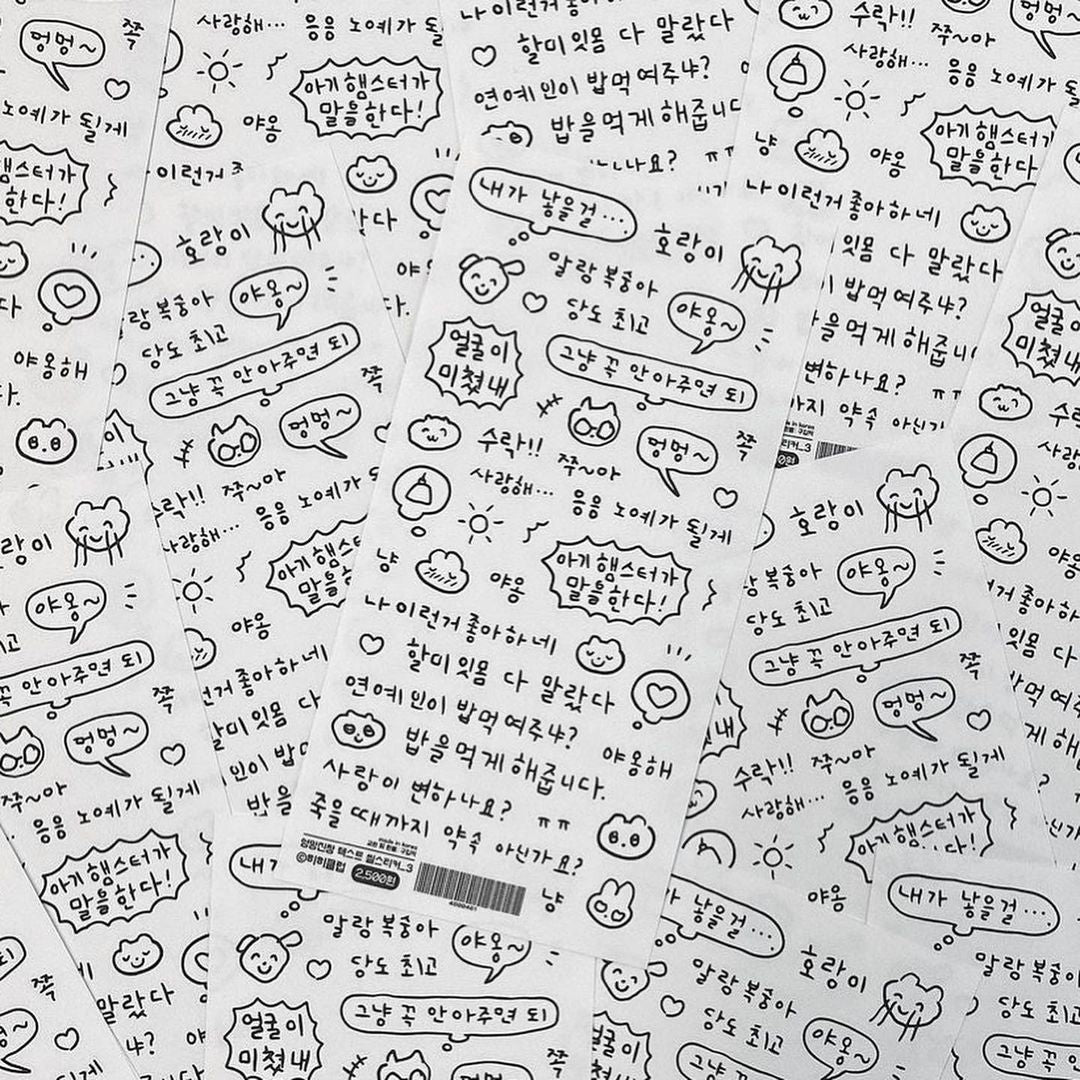 내가 낳을걸...
호랑이
말랑복숭아
당도 최고
야옹~
얼굴이
미쳤내
그냥 꼭 안아주면 되
멍멍~
쪽
수락!! 쭈~아
사랑해... 응응 노예가 될게
냥
야옹
아기 햄스터가
말을한다!
나이런거좋아하네
할미잇몸 다 말랐다
연예인이 밥먹여주냐?
야옹해
밥을먹게해줍니다.
사랑이 변하나요? ㅠㅠ
죽을때까지 약속 아닌가요?
냥
made in korea
교환 및 환불: 구입처
텍스트 씰스티커_3
©히히클럽
2,500원